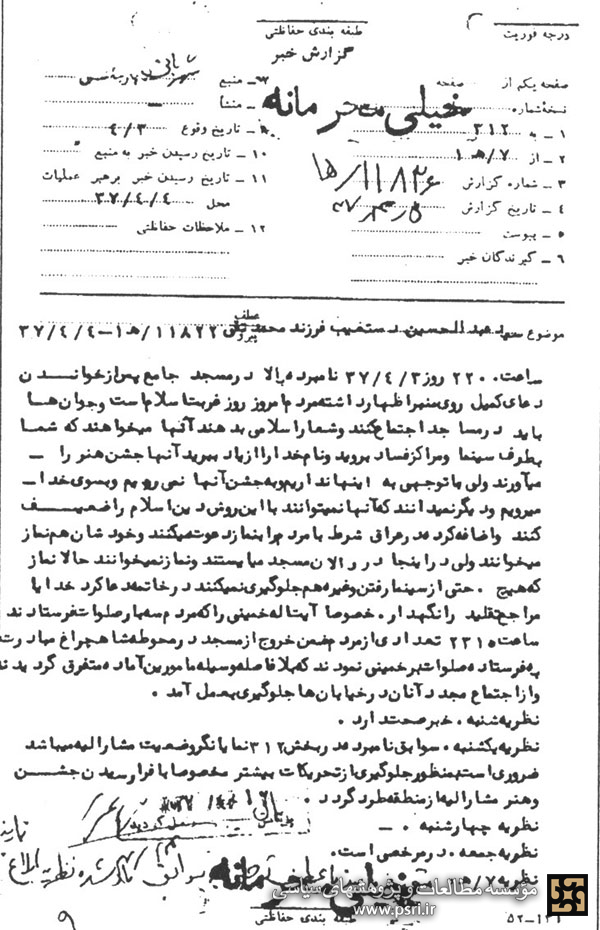 درجه فوریت
طبقه بندی حفاظتی
گزارش خبر
خیلی محرمانه
صفحه یکم از صفحه
نسخهٔ شماره
۱ ـ به ۳۱۲
۲ ـ از ۷/هـ ۱
۳ ـ شماره گزارش ۱۱۸۲۶/ها
۴ ـ تاریخ گزارش ۳۷/۴/۵
۵ ـ پیوست
۶ ـ گیرندگان خبر
۷ ـ منبع
ـ منشأ ـ
۹ ـ تاریخ وقوع ۴/۳
۱۰ ـ تاریخ رسیدن خبر به منبع
۱۱ ـ تاریخ رسیدن خبر برهبر عملیات
محل ۳۷/۴/۴
۱۲ ـ ملاحظات حفاظتی
موضوع سید عبدالحسین دستغیب فرزند محمدتقی عطف پیرو ۱۱۸۲۲/هـ۱-۳۷/۴/۴
ساعت ۲۲۰۰ روز ۳۷/۴/۳ نامبرده بالا در مسجد جامع پس از خواندن
دعای کمیل روی منبر اظهار داشته مردم امروز روز غربت اسلام است و جوان ها
باید در مساجد اجتماع کنند و شعار اسلامی بدهند آقا میخواهند که شما
بطرف سینما و مراکز فساد بروید و نام خدا را از یاد ببرید آنها جشن هنر را ـ
میآورند ولی ما توجهی به اینها نداریم و به جشن آنها نمی رویم و بسوی خدا ـ
میرویم و دیگر نمیدانند که آنها نمیتوانند با این روش دین اسلام را ضعیف
کنند و اضافه کرد در عراق شرط با مردم را بنماز دعوت میکنند و خودشان هم نماز
میخوانند ولی در اینجا در والان مسجد میایستند و نماز نمیخوانند حالا نماز
که هیچ . حتی از سینما رفتن و غیره هم جلوگیری نمیکنند در خاتمه دعا کرد خدایا
مراجع تقلید را نگهدار . خصوصا آیت اله خمینی را که مردم سه بار صلوات فرستادند
ساعت ۲۳۱۵ تعدادی از مردم ضمن خروج از مسجد در محوطه شاهچراغ مبادرت
به فرستادن صلوات بر خمینی نمودند که بلافاصله وسیله مامورین آماده متفرق گردیدند
و از اجتماع مجدد آنان در خیابان ها جلوگیری بعمل آمد .
نظریه شنبه . خبر صحت دارد .
نظریه یکشنبه . سوابق نامبرده در بخش ۳۱۲ نمایانگر وضعیت مشارالیه میباشد
ضروری است به منظور جلوگیری از تحریکات بیشتر مخصوصا با فرا رسیدن جشن
و هنر مشارالیه از منطقه طرد گردد .
نظریه چهارشنبه . ـ
نظریه جمعه . در مرخصی است .
نظریه ۷/هـ
خیلی محرمانه
طبقه بندی حفاظتی
مؤسسه مطالعات و پژوهشهای سیاسی
www.psri.ir